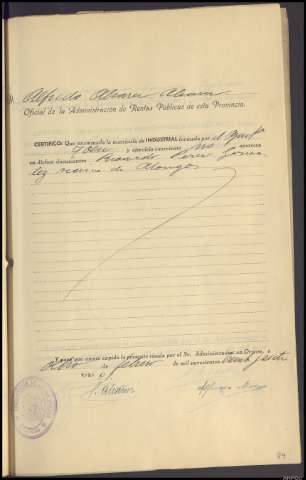 D. Alfredo Alvarez Alvarez
Oficial de la Administración de Rentas Públicas de esta Provincia.
CERTIFICO: Que examinada la matrícula de INDUSTRIAL formada por el
y obrados no aparece
en dichos documentos Ricardo Perez Gonza
lez vecino de
Y para que conste expido la presente visada por el Sr. Administrador en Orense, a
ocho de febrero de mil novecientos treinta y siete
V.º B.º
84